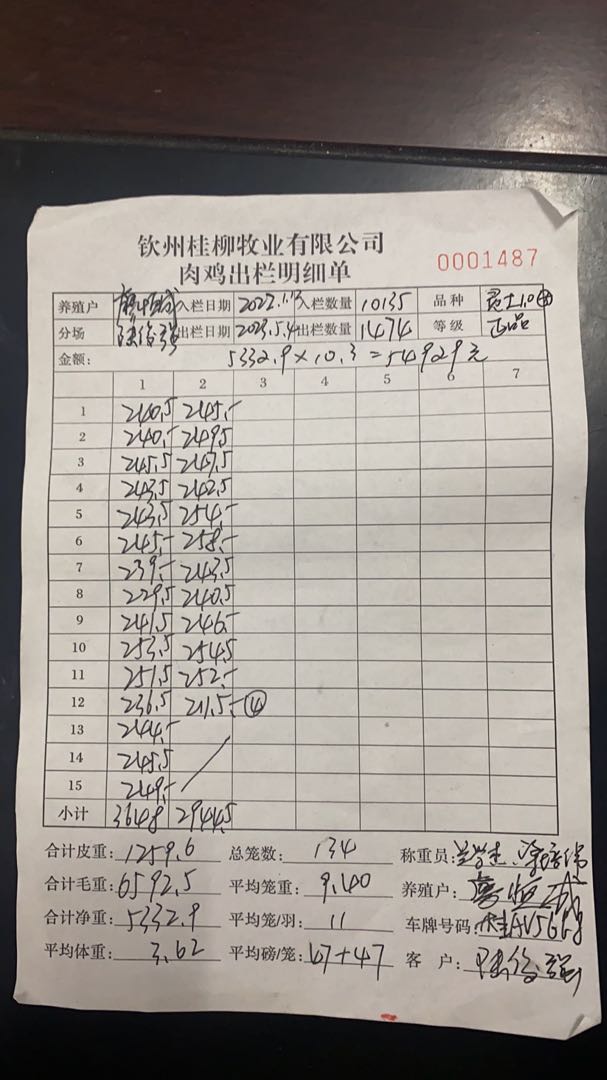 钦州桂柳牧业有限公司
肉鸡出栏明细单
0001487
养殖户 入栏日期 2022.1.13 入栏数量 10135 品种
分场 陆俗强 出栏日期 2023.5.4 出栏数量 1474 等级 正品
金额: 5332.9×10.3=54929元
1 2 3 4 5 6 7
1 240.5 245.-
2 240.- 249.5
3 245.5 247.5
4 243.5 242.5
5 243.5 254.-
6 245.- 258.-
7 239.- 243.5
8 229.5 240.5
9 241.5 246.-
10 253.5 254.5
11 251.5 252.-
12 236.5 211.5.- ④
13 244.-
14 245.5
15 249.-
小计 3648 2944.5
合计皮重: 1259.6 总笼数: 134 称重员:
合计毛重: 6592.5 平均笼重: 9.40 养殖户:
合计净重: 5332.9 平均笼/羽: 11 车牌号码: 桂AV5668
平均体重: 3.62 平均磅/笼: 67+47 客户: 陆俗强